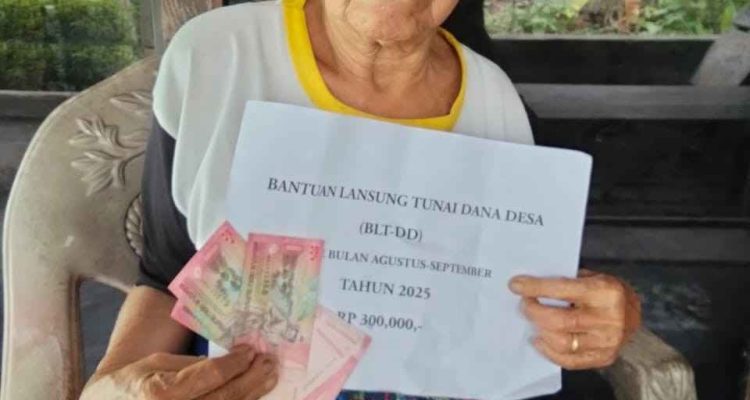 BANTUAN LANSUNG TUNAI DANA DESA
(BLT-DD)
BULAN AGUSTUS-SEPTEMBER
TAHUN 2025
RP 300,000,-